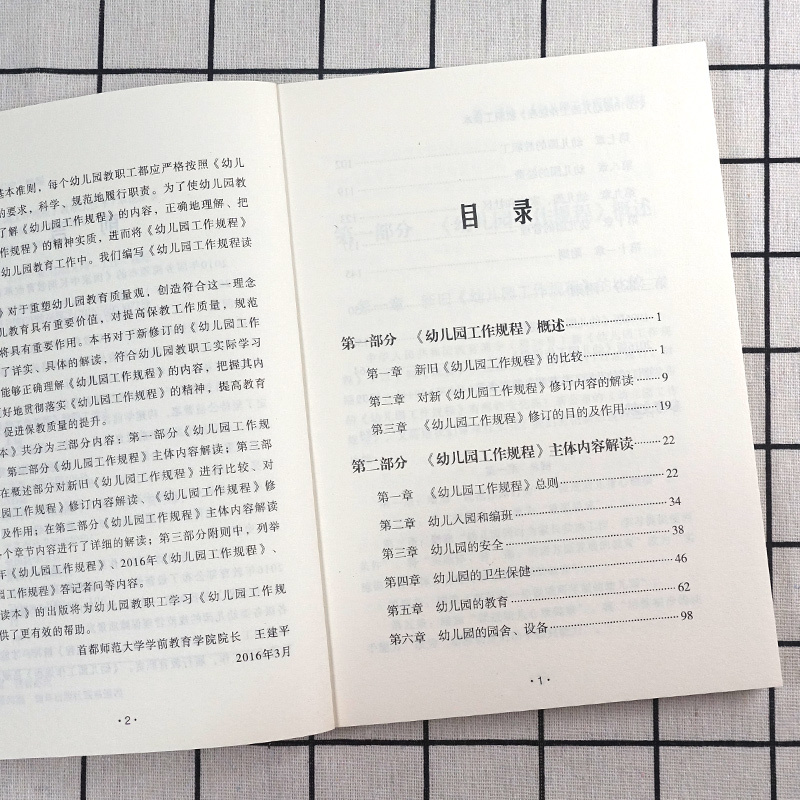 基本准则，每个幼儿园教职工都应严格按照《幼儿
的要求，科学、规范地履行职责。为了使幼儿园教
了解《幼儿园工作规程》的内容，正确地理解、把
作规程》的精神实质，进而将《幼儿园工作规程》
幼儿园教育工作中。我们编写《幼儿园工作规程读
》对于重塑幼儿园教育质量观，创造符合这一理念
儿教育具有重要价值，对于提高保教工作质量，规范
将具有重要作用。本书对于新修订的《幼儿园工作
了详实、具体的解读，符合幼儿园教职工实际学习
能够正确理解《幼儿园工作规程》的内容，把握其内
更好地贯彻落实《幼儿园工作规程》的精神，提高教育
促进保教质量的提升。
本》共分为三部分内容：第一部分《幼儿园工作规
第二部分《幼儿园工作规程》主体内容解读；第三部
在概述部分对新旧《幼儿园工作规程》进行比较、对
园工作规程》修订内容解读、《幼儿园工作规程》修
及作用；在第二部分《幼儿园工作规程》主体内容解读
个章节内容进行了详细的解读；第三部分附则中，列举
年《幼儿园工作规程》、2016年《幼儿园工作规程》、
园工作规程》答记者问等内容。
读本》的出版将为幼儿园教职工学习《幼儿园工作规
供了更有效的帮助。
首都师范大学学前教育学院院长　王建平
2016年3月
·2·
目　录
第一部分　《幼儿园工作规程》概述………………1
第一章　新旧《幼儿园工作规程》的比较…………1
第二章　对新《幼儿园工作规程》修订内容的解读……9
第三章　《幼儿园工作规程》修订的目的及作用……19
第二部分　《幼儿园工作规程》主体内容解读………22
第一章　《幼儿园工作规程》总则………………22
第二章　幼儿入园和编班………………34
第三章　幼儿园的安全………………38
第四章　幼儿园的卫生保健………………46
第五章　幼儿园的教育………………62
第六章　幼儿园的园舍、设备………………98
·1·